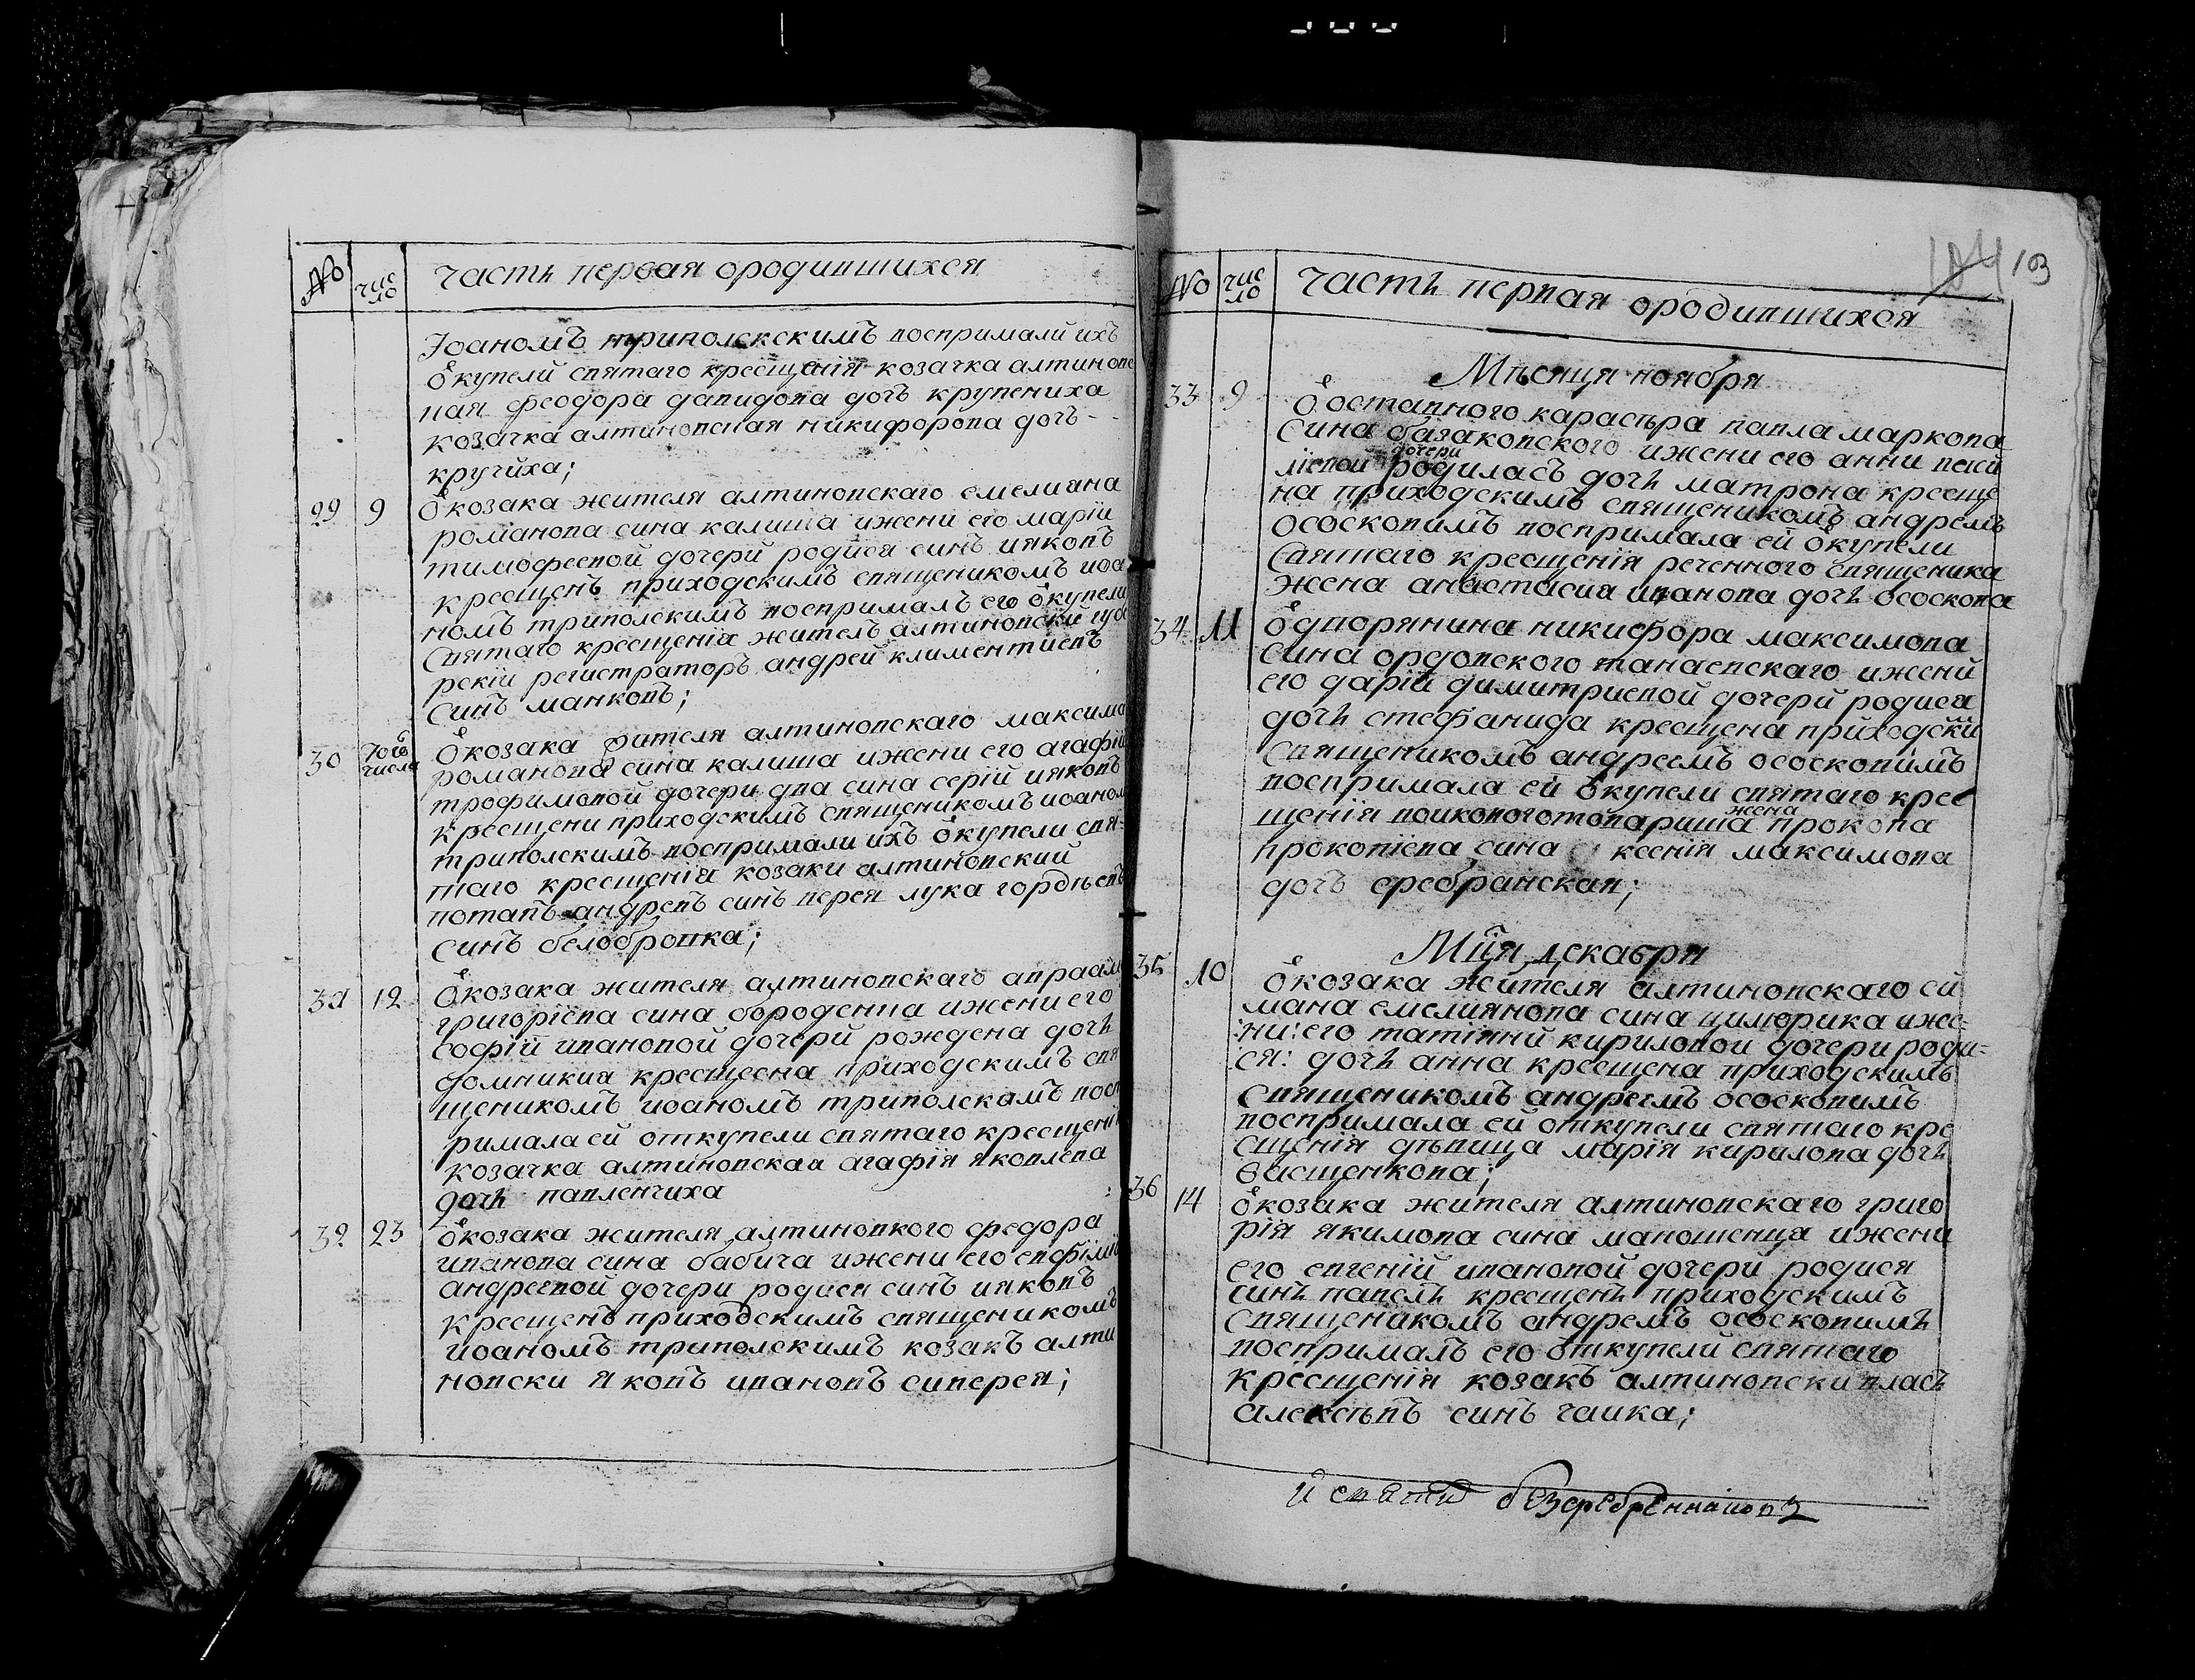 № число часть первая ородившихся
Іоаномъ триполскскимъ воспримали ихъ
ѿкупели святаго крещенія козачка алтинов
ная феодора давидова дочъ крупениха
козачка алтиновская никифорова дочъ -
кручиха;
29 9 ѿкозака жителя алтиновскаго емелиана
романова сина калиша ижени его маріи
тимофеевой дочери родися синъ ияковъ
крещенъ приходскимъ священикомъ иоа
номъ триполскимъ воспрималъ его ѿкупели
святаго крещенія жителъ алтиновский губе
рскій регистраторъ андрей климентиевъ
синъ манковъ;
30 того числа ѿкозака жителя алтиновскаго максима
романова сина калиша ижени его агафіи
трофимовой дочери два сина сергій ияковъ
крещени приходскимъ священикомъ иоаном
триполскимъ воспримали ихъ ѿкупели свя=
таго крещенія козаки алтиновский
потапъ андреевъ синъ верея лука гордѣевъ
синъ белобровка;
31 12 ѿкозака жителя алтиновскаго авраам
григоріева сина бороденна ижени его
софіи ивановой дочери рождена дочь
домникия крещеена приходскимъ свя
щеникомъ иоаномъ триполскамъ восп
римала ей откупели святаго крещенія
козачка алтиновская агафія яковлева
дочь павленчиха
32 23 ѿкозака жителя алтиновкого федора
иванова сина бабича ижени его евфіміи
андреевой дочери родися синъ ияковъ
крещенъ приходскимъ священикомъ
иоаномъ триполскимъ козакъ алти
новски яковъ ивановъ сиверея;
103
№ число часть первая ородившихся
Мѣсяца ноября
33 9 ѿоставного карасѣра павла маркова
сина базаковского ижени его анни васи
ліевой дочери родиласъ дочь матрона креще
на приходскимъ священикомъ андремъ
ососковимъ воспримала ей ѿкупели
святаго крещенія реченного священика
жена анастасия иванова дочь ососкова
34 11 ѿдворянина никифора максимова
сина ордовского танаевскаго ижени
его даріи димитриевой дочери родися
дочь стефанида крещена приходски
священикомъ андреемъ ососковимъ
воспримала ей ѿкупели святаго крее
щенія воиковоготовариша жена прокопа
прокопієва сина ксенія максимова
дочъ сребранская;
Мц͠а декабря
35 10 ѿкозака жителя алтиновскаго си
мана емелиянова сина цилюрика иже=
ни: его татіяни кириловой дочери роди=
ся: дочь анна крещена приходскимъ
священикомъ андреемъ ососковимъ
воспримала ей откупели святаго кре
щенія дѣвица марія кирилова дочь
ващенкова;
36 14 ѿкозака жителя алтиновскаго григо
рія якимова сина маношенця ижени
его евгеній ивановой дочери родися
синъ павелъ крещенъ приходскимъ
священикомъ андремъ ососковимъ
воспрималъ его ѿткупели святаго
крещенія козакъ алтиновски власъ
алексѣевъ синъ чаика;
и святи безсребренниковъ